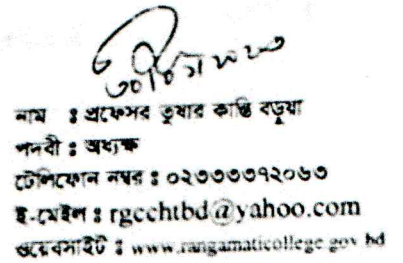 নাম : প্রফেসর তুষার কান্তি বড়ুয়া
পদবী : অধ্যক্ষ
টেলিফোন নম্বর : ০২৩৩৩৩৭২০৬৩
ই-মেইল : rgcchtbd@yahoo.com
ওয়েবসাইট : www.rangamaticollege.gov.bd